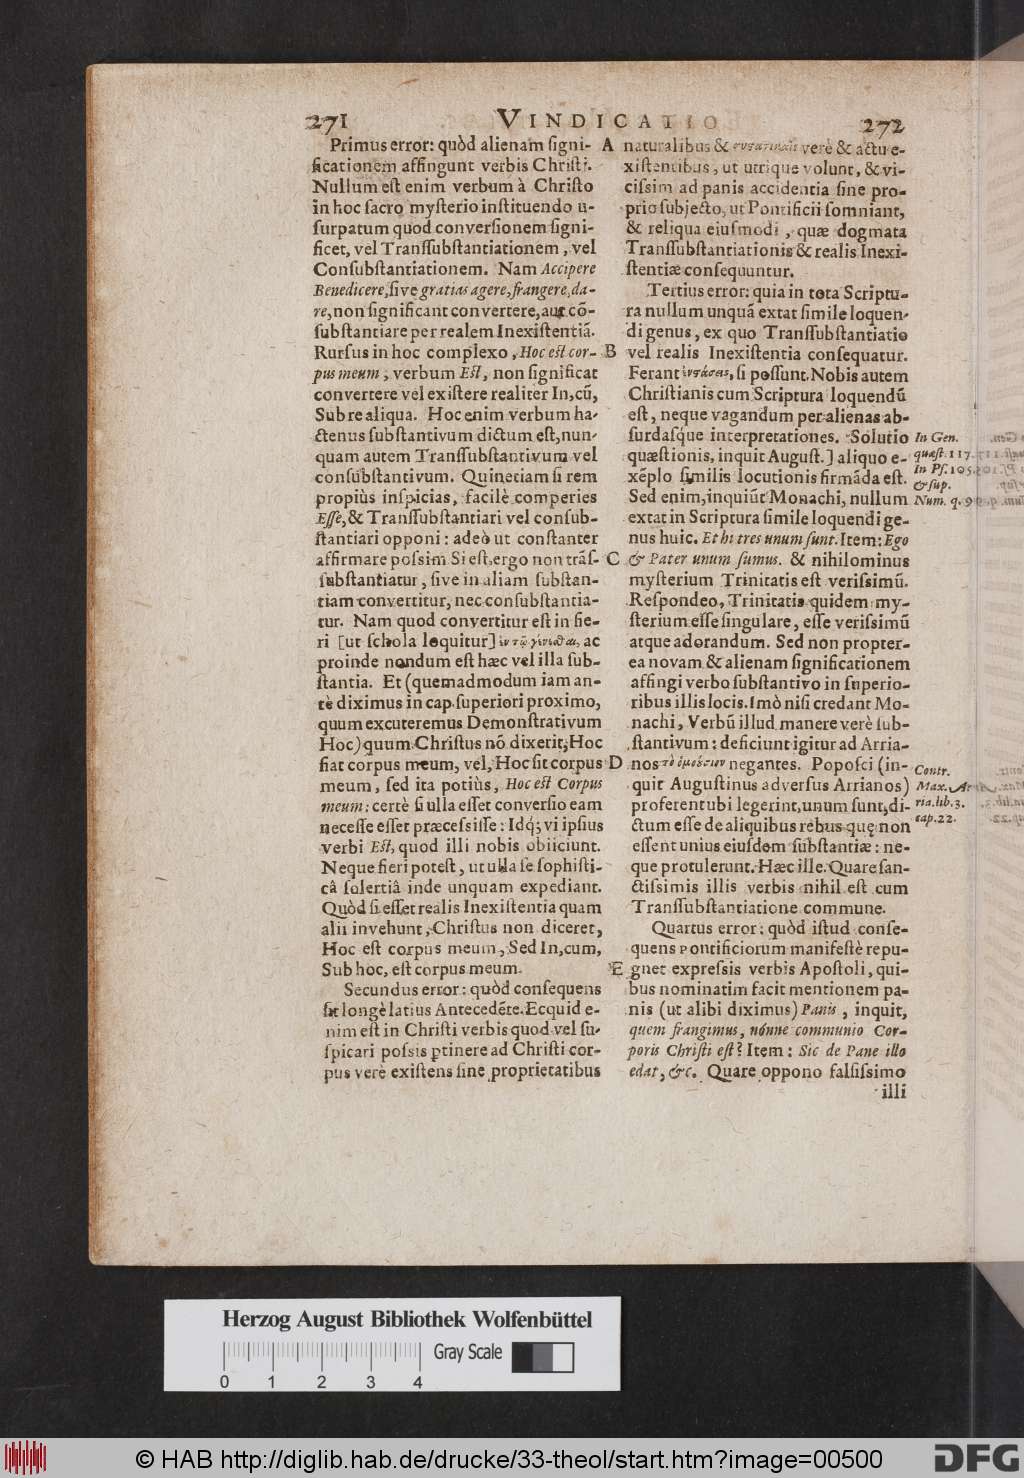 271
VINDICATIO
272
Primus error: quòd alienam ſigni-
ficationem affingunt verbis Chriſti.
Nullum eſt enim verbum à Chriſto
in hoc ſacro myſterio inſtituendo u-
ſurpatum quod converſionem ſigni-
ficet, vel Tranſſubſtantiationem, vel
Conſubſtantiationem. Nam Accipere
Benedicere, ſive gratias agere, frangere, da-
re, non ſignificant convertere, aut cō-
ſubſtantiare per realem Inexiſtentiā.
Rurſus in hoc complexo, Hoc eſt cor-
pus meum, verbum Eſt, non ſignificat
convertere vel exiſtere realiter In, cū,
Sub re aliqua. Hoc enim verbum ha-
ctenus ſubſtantivum dictum eſt, nun-
quam autem Tranſſubſtantivum vel
conſubſtantivum. Quinetiam ſi rem
propiùs inſpicias, facilè comperies
Eſſe, & Tranſſubſtantiari vel conſub-
ſtantiari opponi: adeò ut conſtanter
affirmare poſsim Si eſt, ergo non trāſ-
ſubſtantiatur, ſive in aliam ſubſtan-
tiam convertitur, nec conſubſtantia-
tur. Nam quod convertitur eſt in fie-
ri [ut ſchola loquitur] ἐν τῷ γίνεσθαι, ac
proinde nondum eſt hæc vel illa ſub-
ſtantia. Et (quemadmodum iam an-
tè diximus in cap. ſuperiori proximo,
quum excuteremus Demonſtrativum
Hoc) quum Chriſtus nō dixerit, Hoc
fiat corpus meum, vel, Hoc ſit corpus
meum, ſed ita potiùs, Hoc eſt Corpus
meum: certè ſi ulla eſſet converſio eam
neceſſe eſſet præceſsiſſe: Idq; vi ipſius
verbi Eſt, quod illi nobis obiiciunt.
Neque fieri poteſt, ut ulla ſe ſophiſti-
câ ſolertiâ inde unquam expediant.
Quòd ſi eſſet realis Inexiſtentia quam
alii invehunt, Chriſtus non diceret,
Hoc eſt corpus meum, Sed In, cum,
Sub hoc, eſt corpus meum.
Secundus error: quòd conſequens
ſit longè latius Antecedēte. Ecquid e-
nim eſt in Chriſti verbis quod vel ſu-
ſpicari poſsis ptinere ad Chriſti cor-
pus verè exiſtens ſine proprietatibus
A
B
C
D
E
naturalibus & verè & actu e-
xiſtentibus, ut utrique volunt, & vi-
ciſsim ad panis accidentia ſine pro-
prio ſubjecto, ut Pontificii ſomniant,
& reliqua eiuſmodi, quæ dogmata
Tranſſubſtantiationis & realis Inexi-
ſtentiæ conſequuntur.
Tertius error: quia in tota Scriptu-
ra nullum unquā extat ſimile loquen-
di genus, ex quo Tranſſubſtantiatio
vel realis Inexiſtentia conſequatur.
Ferant ἐνστάσεις, ſi poſſunt. Nobis autem
Chriſtianis cum Scriptura loquendū
eſt, neque vagandum per alienas ab-
ſurdaſque interpretationes. Solutio
quæſtionis, inquit Auguſt.] aliquo e-
xēplo ſimilis locutionis firmāda eſt.
Sed enim, inquiūt Monachi, nullum
extat in Scriptura ſimile loquendi ge-
nus huic. Et hi tres unum ſunt. Item: Ego
& Pater unum ſumus. & nihilominus
myſterium Trinitatis eſt veriſsimū.
Reſpondeo, Trinitatis quidem my-
ſterium eſſe ſingulare, eſſe veriſsimū
atque adorandum. Sed non propter-
ea novam & alienam ſignificationem
affingi verbo ſubſtantivo in ſuperio-
ribus illis locis. Imò niſi credant Mo-
nachi, Verbū illud manere verè ſub-
ſtantivum: deficiunt igitur ad Arria-
nos τὸ ὁμοούσιον negantes. Popoſci (in-
quit Auguſtinus adverſus Arrianos)
proferent ubi legerint, unum ſunt, di-
ctum eſſe de aliquibus rebus quę non
eſſent unius eiuſdem ſubſtantiæ: ne-
que protulerunt. Hæc ille. Quare ſan-
ctiſsimis illis verbis nihil eſt cum
Tranſſubſtantiatione commune.
Quartus error: quòd iſtud conſe-
quens Pontificiorum manifeſtè repu-
gnet expreſsis verbis Apoſtoli, qui-
bus nominatim facit mentionem pa-
nis (ut alibi diximus) Panis, inquit,
quem frangimus, nónne communio Cor-
poris Chriſti eſt? Item: Sic de Pane illo
edat, &c. Quare oppono falſiſsimo
illi
In Gen.
quæſt. 117.
In Pſ. 105.
& ſup.
Num. q. 9
Contr.
Max. Ar
ria. lib. 3.
cap. 22.
Herzog August Bibliothek Wolfenbüttel
Gray Scale
0 1 2 3 4
© HAB http://diglib.hab.de/drucke/33-theol/start.htm?image=00500
DFG